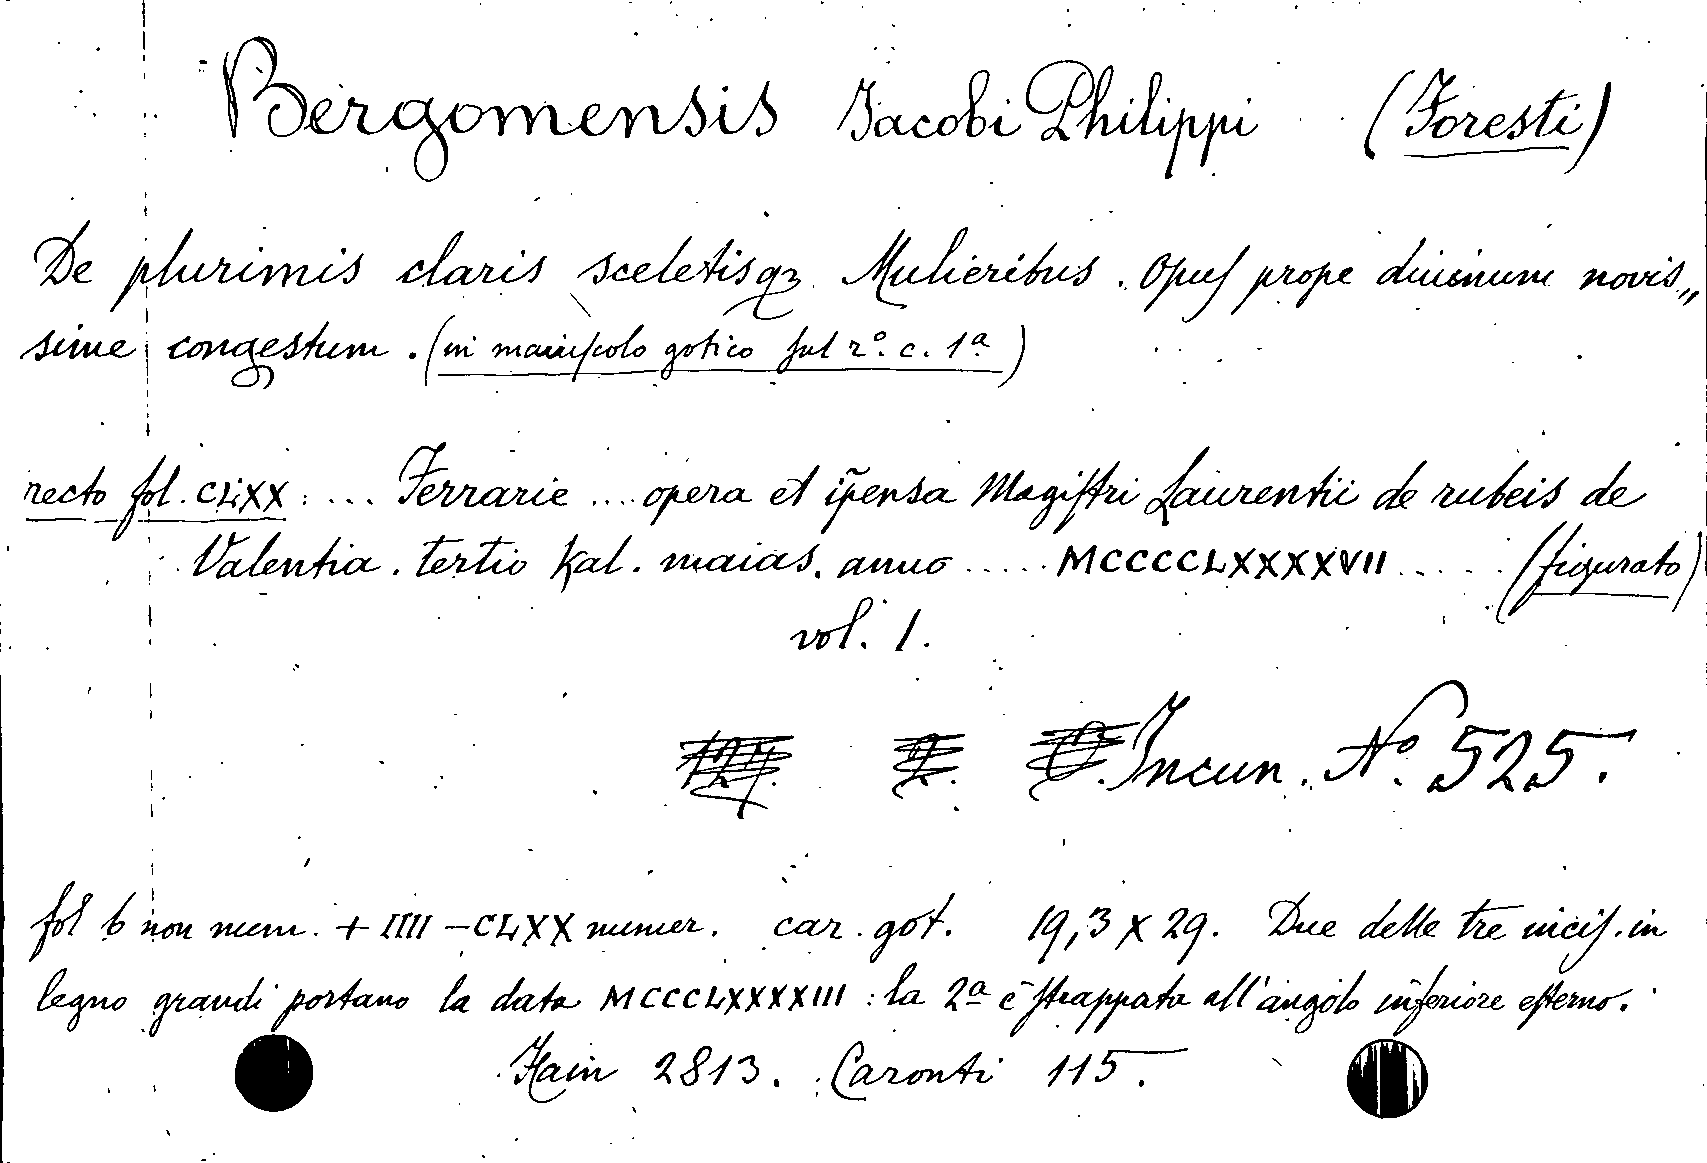 Bergomensis Jacobi Philippi (Foresti)
De plurimis claris sceletisqz Mulieribus. Opus prope diuinum novis„
sime congestum. (in maiuscolo gotico sul r°. c. 1ª)
recto fol. CLXX: ... Ferrarie .... opera et īpensa Magistri Laurentii de rubeis de
Valentia. tertio Kal. maias. anno ..... MCCCCLXXXXVII ..... (figurato)
vol. 1.
Incun. N° 525.
fol 6 non num. + IIII – CLXX numer. car. got. 19,3 X 29. Due delle tre incis. in
legno grandi portano la data MCCCLXXXXIII: la 2ª è strappata all'angolo inferiore esterno.
Hain 2813. Caronti 115.